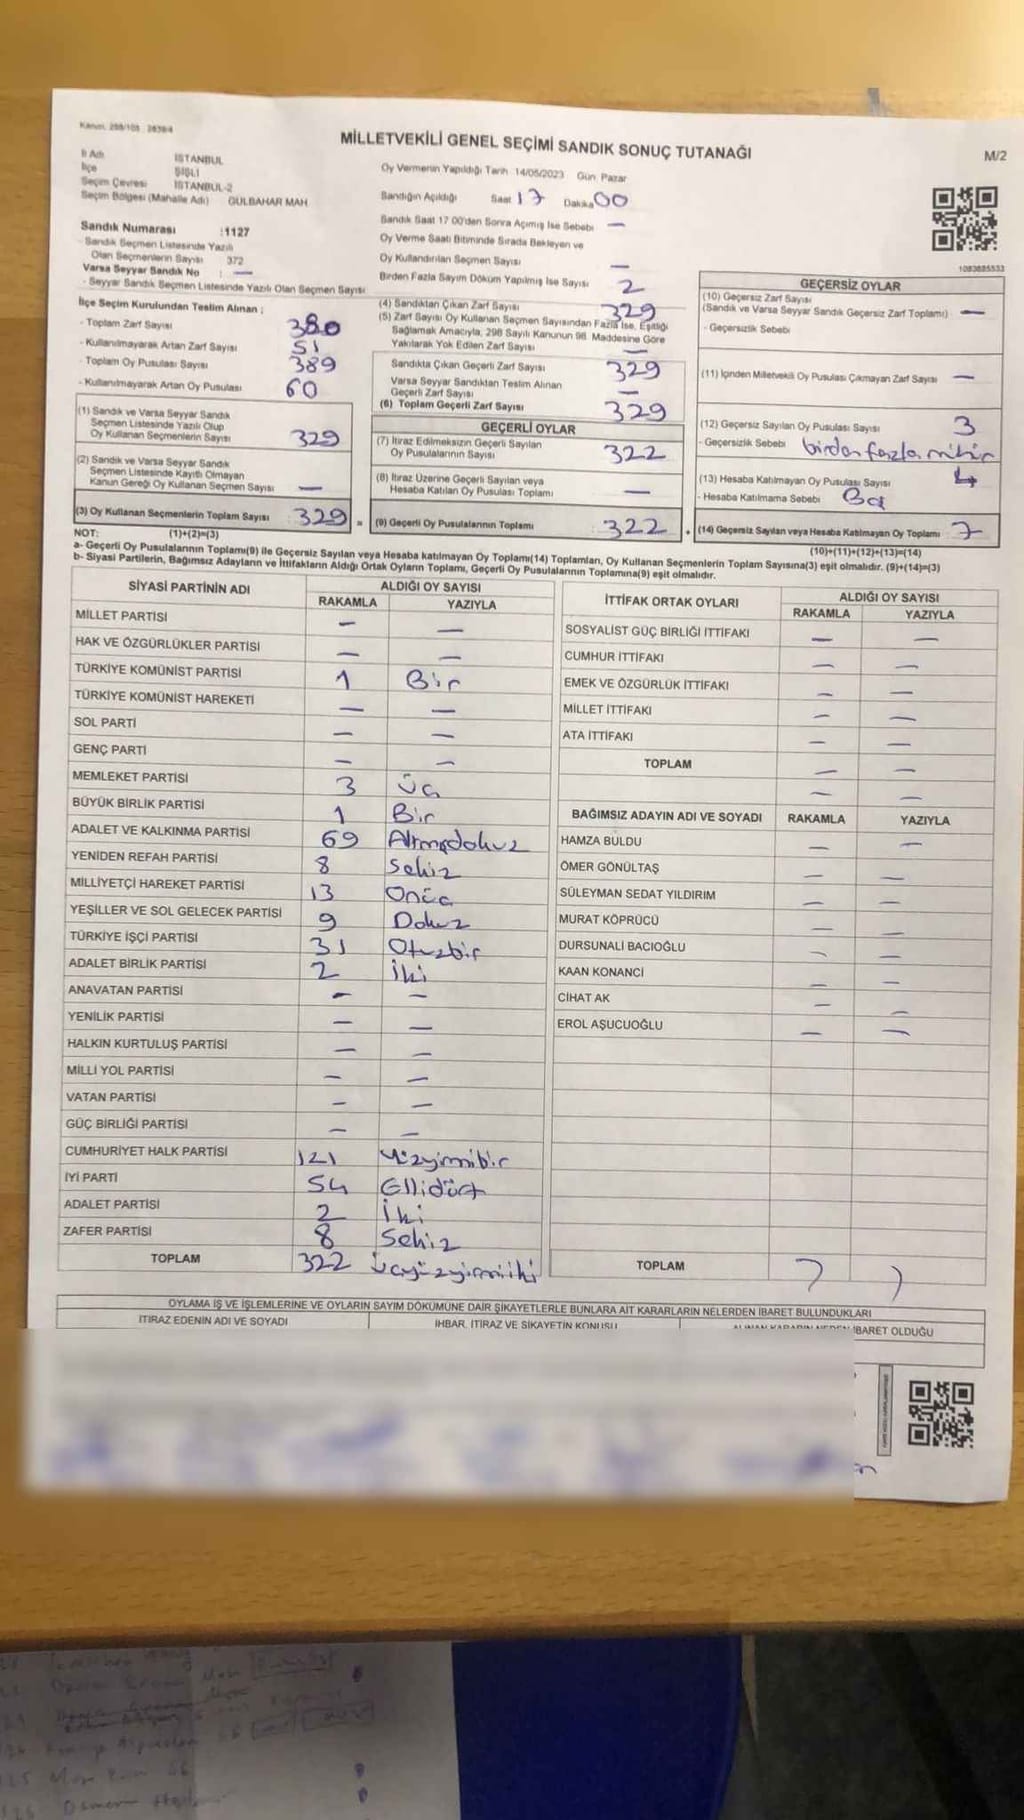 Kanun. 298/105 2839/4
MİLLETVEKİLİ GENEL SEÇİMİ SANDIK SONUÇ TUTANAĞI
M/2
İl Adı İSTANBUL
İlçe ŞİŞLİ
Seçim Çevresi İSTANBUL-2
Seçim Bölgesi (Mahalle Adı) GÜLBAHAR MAH
Sandık Numarası :1127
- Sandık Seçmen Listesinde Yazılı
Olan Seçmenlerin Sayısı 372
Varsa Seyyar Sandık No : —
- Seyyar Sandık Seçmen Listesinde Yazılı Olan Seçmen Sayısı
Oy Vermenin Yapıldığı Tarih 14/05/2023 Gün. Pazar
Sandığın Açıldığı Saat 17 Dakika 00
Sandık Saat 17 00'den Sonra Açımış İse Sebebi —
Oy Verme Saati Bitiminde Sırada Bekleyen ve
Oy Kullandırılan Seçmen Sayısı —
Birden Fazla Sayım Döküm Yapılmış İse Sayısı 2
1083885533
İlçe Seçim Kurulundan Teslim Alınan ;
- Toplam Zarf Sayısı 380
- Kullanılmayarak Artan Zarf Sayısı 51
- Toplam Oy Pusulası Sayısı 389
- Kullanılmayarak Artan Oy Pusulası 60
(1) Sandık ve Varsa Seyyar Sandık
Seçmen Listesinde Yazılı Olup
Oy Kullanan Seçmenlerin Sayısı 329
(2) Sandık ve Varsa Seyyar Sandık
Seçmen Listesinde Kayıtlı Olmayan
Kanun Gereği Oy Kullanan Seçmen Sayısı —
(3) Oy Kullanan Seçmenlerin Toplam Sayısı 329 =
(4) Sandıktan Çıkan Zarf Sayısı 329
(5) Zarf Sayısı Oy Kullanan Seçmen Sayısından Fazla İse, Eşitliği
Sağlamak Amacıyla, 298 Sayılı Kanunun 98. Maddesine Göre
Yakılarak Yok Edilen Zarf Sayısı —
Sandıkta Çıkan Geçerli Zarf Sayısı 329
Varsa Seyyar Sandıktan Teslim Alınan
Geçerli Zarf Sayısı —
(6) Toplam Geçerli Zarf Sayısı 329
GEÇERLİ OYLAR
(7) İtiraz Edilmeksizin Geçerli Sayılan
Oy Pusulalarının Sayısı 322
(8) İtiraz Üzerine Geçerli Sayılan veya
Hesaba Katılan Oy Pusulası Toplamı —
(9) Geçerli Oy Pusulalarının Toplamı 322
GEÇERSİZ OYLAR
(10) Geçersiz Zarf Sayısı
(Sandık ve Varsa Seyyar Sandık Geçersiz Zarf Toplamı) —
- Geçersizlik Sebebi
(11) İçinden Milletvekili Oy Pusulası Çıkmayan Zarf Sayısı —
(12) Geçersiz Sayılan Oy Pusulası Sayısı 3
- Geçersizlik Sebebi birden fazla mühür
(13) Hesaba Katılmayan Oy Pusulası Sayısı 4
- Hesaba Katılmama Sebebi Boş
(14) Geçersiz Sayılan veya Hesaba Katılmayan Oy Toplamı 7
NOT: (1)+(2)=(3)
(10)+(11)+(12)+(13)=(14)
a- Geçerli Oy Pusulalarının Toplamı(9) ile Geçersiz Sayılan veya Hesaba katılmayan Oy Toplamı(14) Toplamları, Oy Kullanan Seçmenlerin Toplam Sayısına(3) eşit olmalıdır. (9)+(14)=(3)
b- Siyasi Partilerin, Bağımsız Adayların ve İttifakların Aldığı Ortak Oyların Toplamı, Geçerli Oy Pusulalarının Toplamına(9) eşit olmalıdır.
SİYASİ PARTİNİN ADI ALDIĞI OY SAYISI
RAKAMLA YAZIYLA
MİLLET PARTİSİ — —
HAK VE ÖZGÜRLÜKLER PARTİSİ — —
TÜRKİYE KOMÜNİST PARTİSİ 1 Bir
TÜRKİYE KOMÜNİST HAREKETİ — —
SOL PARTİ — —
GENÇ PARTİ — —
MEMLEKET PARTİSİ 3 Üç
BÜYÜK BİRLİK PARTİSİ 1 Bir
ADALET VE KALKINMA PARTİSİ 69 Altmışdokuz
YENİDEN REFAH PARTİSİ 8 Sekiz
MİLLİYETÇİ HAREKET PARTİSİ 13 Onüç
YEŞİLLER VE SOL GELECEK PARTİSİ 9 Dokuz
TÜRKİYE İŞÇİ PARTİSİ 31 Otuzbir
ADALET BİRLİK PARTİSİ 2 İki
ANAVATAN PARTİSİ — —
YENİLİK PARTİSİ — —
HALKIN KURTULUŞ PARTİSİ — —
MİLLİ YOL PARTİSİ — —
VATAN PARTİSİ — —
GÜÇ BİRLİĞİ PARTİSİ — —
CUMHURİYET HALK PARTİSİ 121 Yüzyirmibir
İYİ PARTİ 54 Ellidört
ADALET PARTİSİ 2 İki
ZAFER PARTİSİ 8 Sekiz
TOPLAM 322 üçyüzyirmiiki
İTTİFAK ORTAK OYLARI ALDIĞI OY SAYISI
RAKAMLA YAZIYLA
SOSYALİST GÜÇ BİRLİĞİ İTTİFAKI — —
CUMHUR İTTİFAKI — —
EMEK VE ÖZGÜRLÜK İTTİFAKI — —
MİLLET İTTİFAKI — —
ATA İTTİFAKI — —
TOPLAM — —
— —
BAĞIMSIZ ADAYIN ADI VE SOYADI RAKAMLA YAZIYLA
HAMZA BULDU — —
ÖMER GÖNÜLTAŞ — —
SÜLEYMAN SEDAT YILDIRIM — —
MURAT KÖPRÜCÜ — —
DURSUNALİ BACIOĞLU — —
KAAN KONANCİ — —
CİHAT AK — —
EROL AŞUCUOĞLU — —
TOPLAM
OYLAMA İŞ VE İŞLEMLERİNE VE OYLARIN SAYIM DÖKÜMÜNE DAİR ŞİKAYETLERLE BUNLARA AİT KARARLARIN NELERDEN İBARET BULUNDUKLARI
İTİRAZ EDENİN ADI VE SOYADI İHBAR, İTİRAZ VE ŞİKAYETİN KONUSU ALINAN KARARIN NEDEN İBARET OLDUĞU